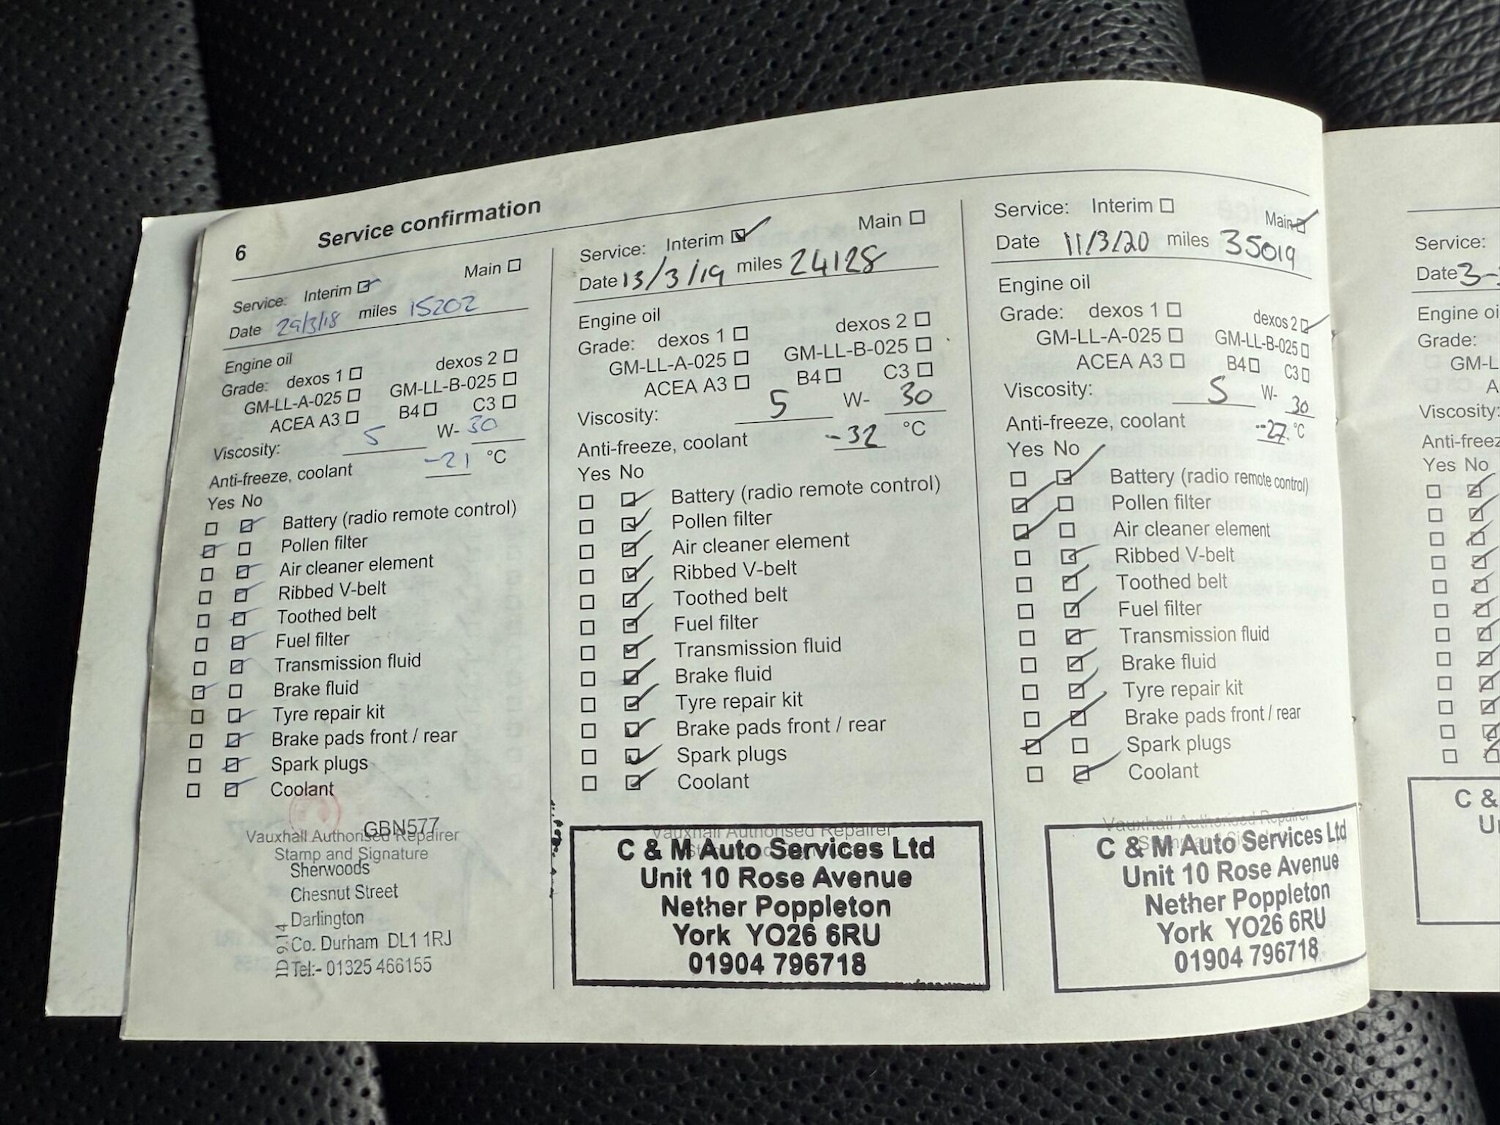 6 Service confirmation
Service: Interim Main
Date 29/3/18 miles 15202
Engine oil
Grade: dexos 1 dexos 2
GM-LL-A-025 GM-LL-B-025
ACEA A3 B4 C3
Viscosity: 5 W- 30
Anti-freeze, coolant -21 °C
Yes No
Battery (radio remote control)
Pollen filter
Air cleaner element
Ribbed V-belt
Toothed belt
Fuel filter
Transmission fluid
Brake fluid
Tyre repair kit
Brake pads front / rear
Spark plugs
Coolant
GBN577
Vauxhall Authorised Repairer
Stamp and Signature
Sherwoods
Chesnut Street
Darlington
Co. Durham DL1 1RJ
Tel:- 01325 466155
Service: Interim Main
Date 13/3/19 miles 24128
Engine oil
Grade: dexos 1 dexos 2
GM-LL-A-025 GM-LL-B-025
ACEA A3 B4 C3
Viscosity: 5 W- 30
Anti-freeze, coolant -32 °C
Yes No
Battery (radio remote control)
Pollen filter
Air cleaner element
Ribbed V-belt
Toothed belt
Fuel filter
Transmission fluid
Brake fluid
Tyre repair kit
Brake pads front / rear
Spark plugs
Coolant
Vauxhall Authorised Repairer
C & M Auto Services Ltd
Unit 10 Rose Avenue
Nether Poppleton
York YO26 6RU
01904 796718
Service: Interim Main
Date 11/3/20 miles 35019
Engine oil
Grade: dexos 1 dexos 2
GM-LL-A-025 GM-LL-B-025
ACEA A3 B4 C3
Viscosity: 5 W- 30
Anti-freeze, coolant -27 °C
Yes No
Battery (radio remote control)
Pollen filter
Air cleaner element
Ribbed V-belt
Toothed belt
Fuel filter
Transmission fluid
Brake fluid
Tyre repair kit
Brake pads front / rear
Spark plugs
Coolant
Vauxhall Authorised Repairer
C & M Auto Services Ltd
Unit 10 Rose Avenue
Nether Poppleton
York YO26 6RU
01904 796718
Service:
Date 3-
Engine oi
Grade:
GM-L
A
Viscosity:
Anti-freez
Yes No
C &